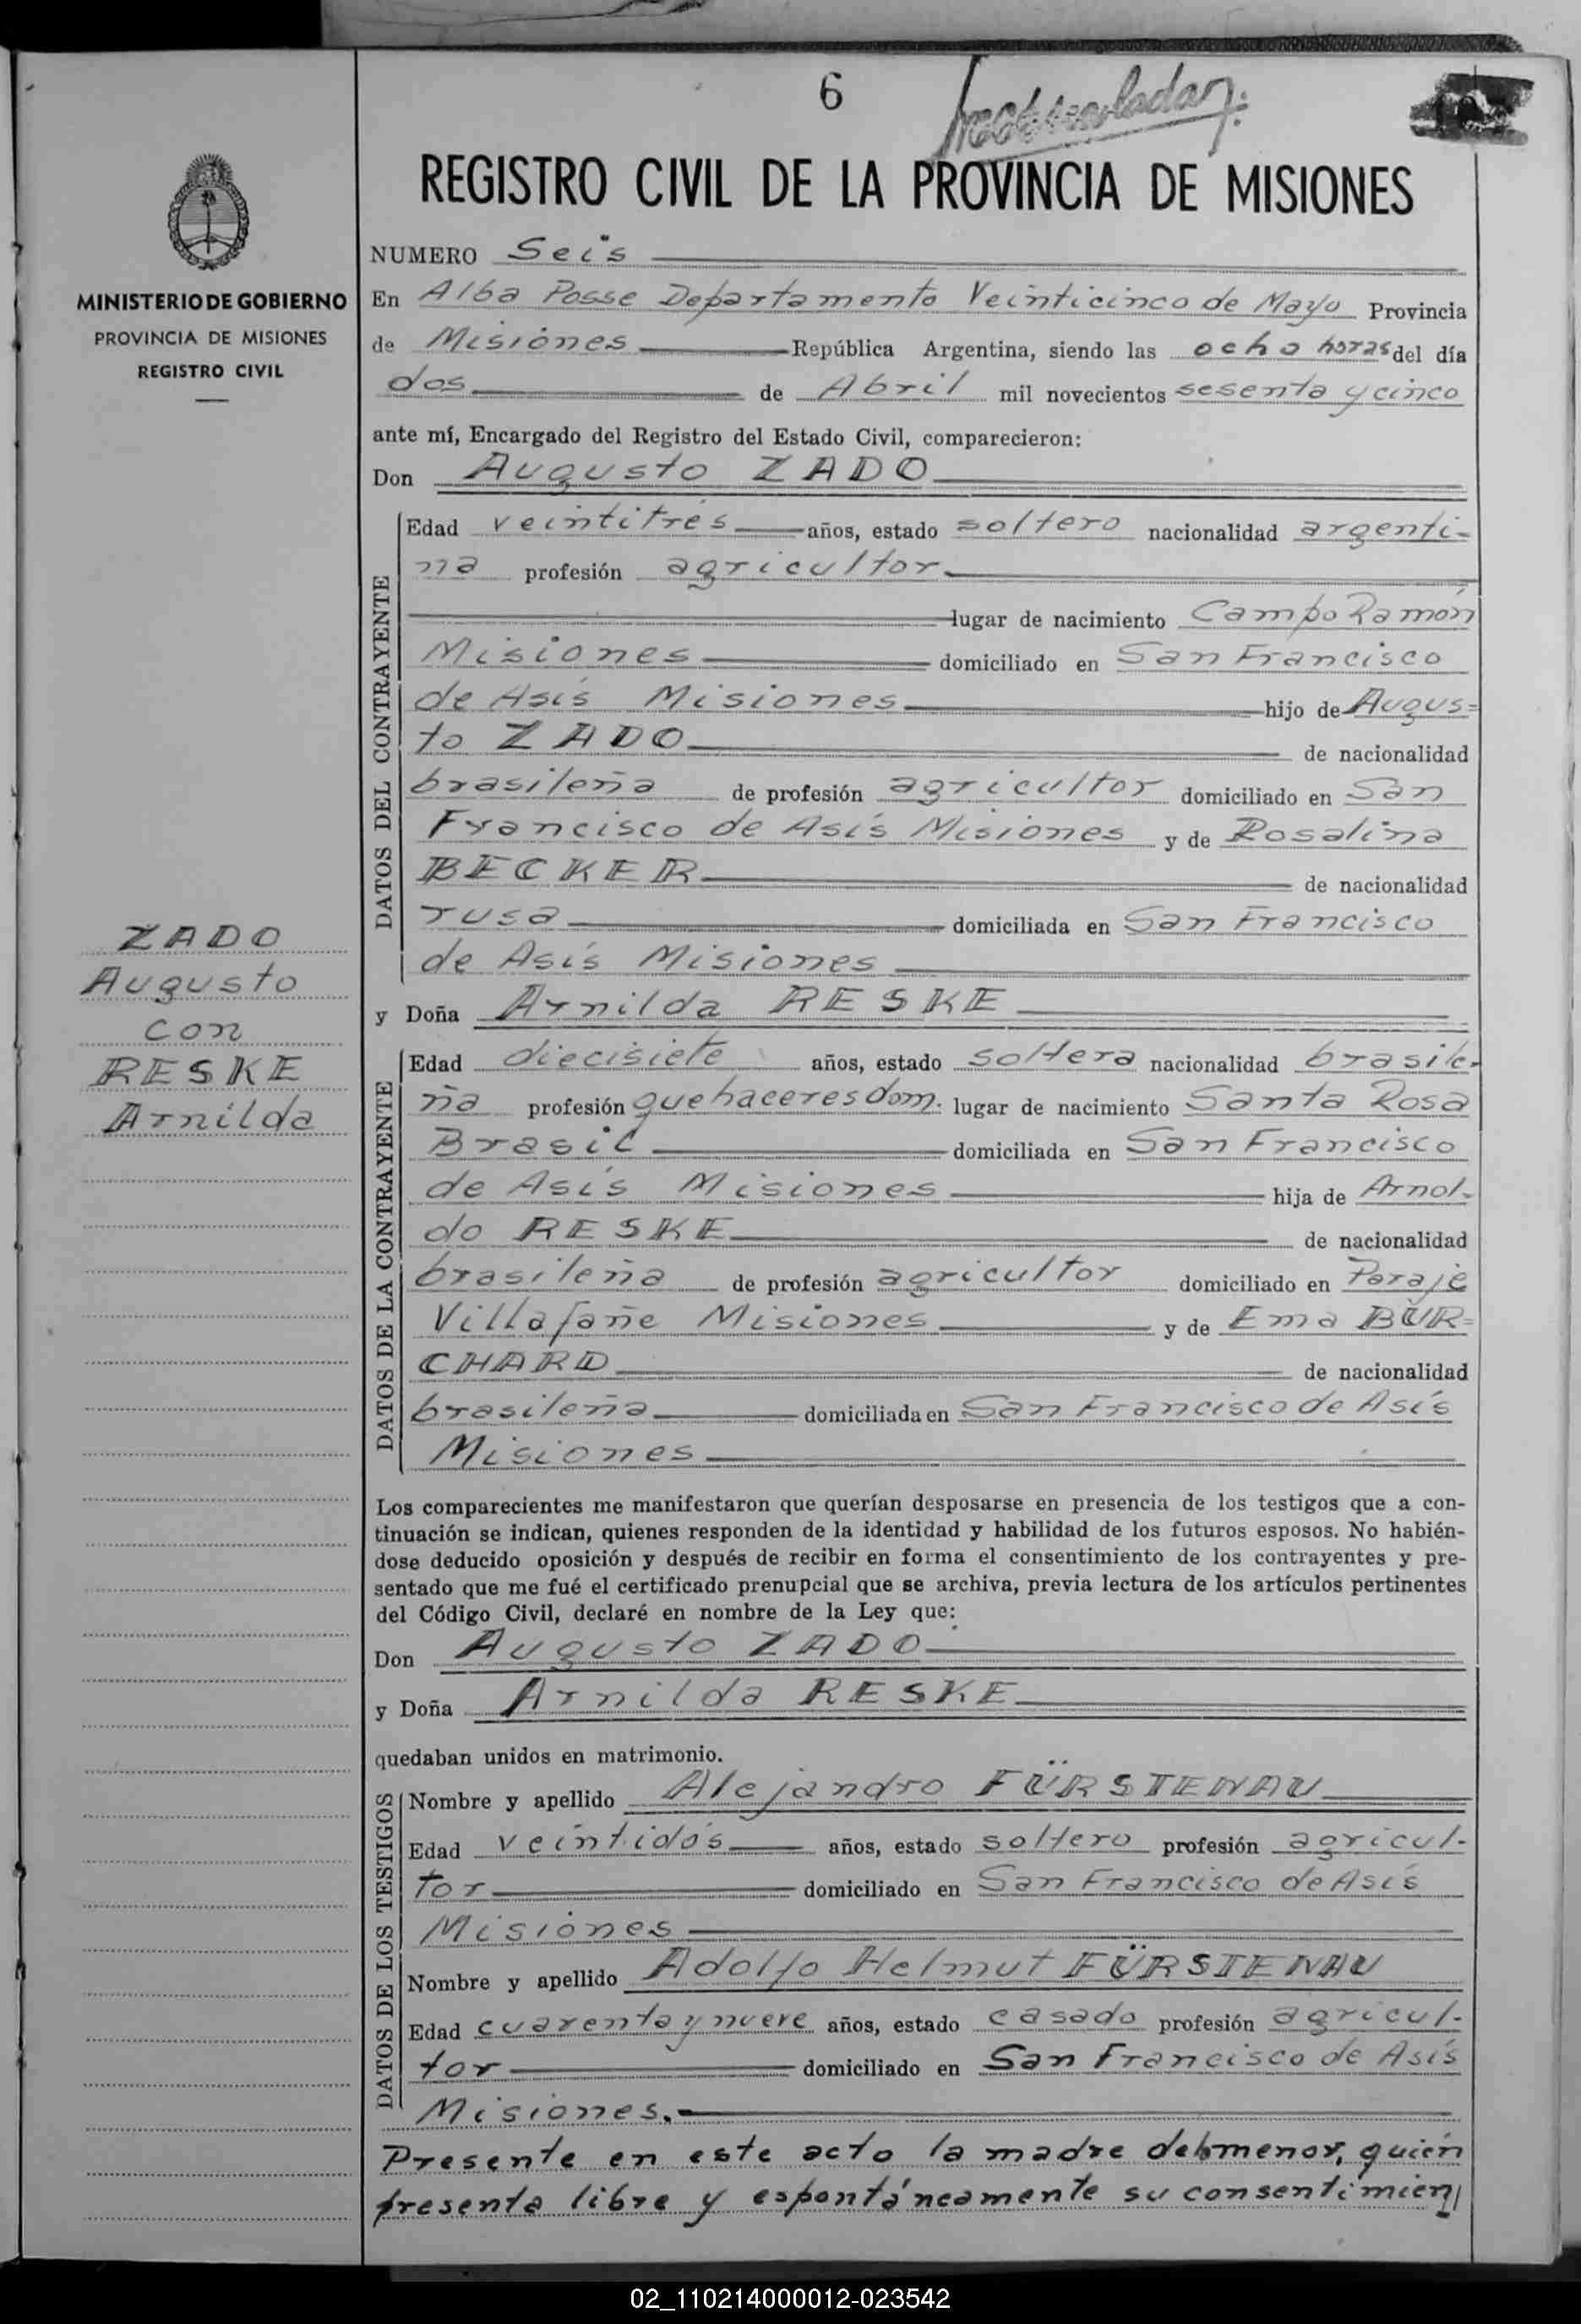 6
REGISTRO CIVIL DE LA PROVINCIA DE MISIONES
MINISTERIO DE GOBIERNO
PROVINCIA DE MISIONES
REGISTRO CIVIL
ZADO
Augusto
con
RESKE
Arnilda
NUMERO Seis
En Alba Posse Departamento Veinticinco de Mayo Provincia
de Misiones República Argentina, siendo las ocho horas del día
dos de Abril mil novecientos sesenta y cinco
ante mí, Encargado del Registro del Estado Civil, comparecieron:
Don Augusto ZADO
DATOS DEL CONTRAYENTE
Edad veintitres años, estado soltero nacionalidad argenti-
na profesión agricultor
lugar de nacimiento Campo Ramón
Misiones domiciliado en San Francisco
de Asís Misiones hijo de Augus=
to ZADO de nacionalidad
brasileña de profesión agricultor domiciliado en San
Francisco de Asís Misiones y de Rosalina
BECKER de nacionalidad
rusa domiciliada en San Francisco
de Asís Misiones
y Doña Arnilda RESKE
DATOS DE LA CONTRAYENTE
Edad diecisiete años, estado soltera nacionalidad brasile-
ña profesión quehaceres dom. lugar de nacimiento Santa Rosa
Brasil domiciliada en San Francisco
de Asís Misiones hija de Arnol-
do RESKE de nacionalidad
brasileña de profesión agricultor domiciliado en Paraje
Villafañe Misiones y de Ema BÜR=
CHARD de nacionalidad
brasileña domiciliada en San Francisco de Asís
Misiones
Los comparecientes me manifestaron que querían desposarse en presencia de los testigos que a con-
tinuación se indican, quienes responden de la identidad y habilidad de los futuros esposos. No habién-
dose deducido oposición y después de recibir en forma el consentimiento de los contrayentes y pre-
sentado que me fué el certificado prenupcial que se archiva, previa lectura de los artículos pertinentes
del Código Civil, declaré en nombre de la Ley que:
Don Augusto ZADO
y Doña Arnilda RESKE
quedaban unidos en matrimonio.
DATOS DE LOS TESTIGOS
Nombre y apellido Alejandro FÜRSTENAU
Edad veintidós años, estado soltero profesión agricul-
tor domiciliado en San Francisco de Asís
Misiones
Nombre y apellido Adolfo Helmut FÜRSTENAU
Edad cuarenta y nueve años, estado casado profesión agricul-
tor domiciliado en San Francisco de Asís
Misiones.
Presente en este acto la madre del menor, quién
presenta libre y espontáneamente su consentimien
02_110214000012-023542